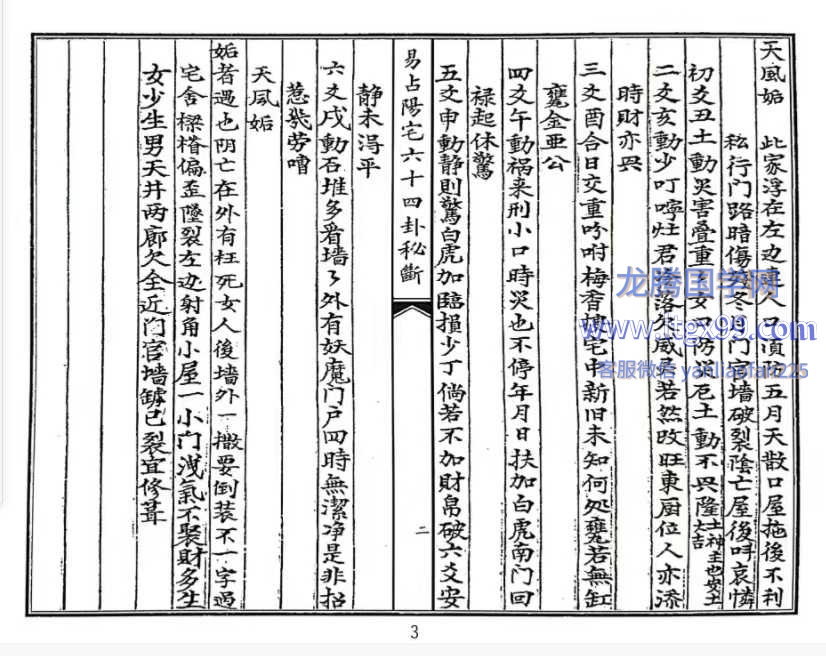 天風姤　此家浮在左边裏人口須防五月天散口屋拖後不利
私行門路暗傷冬月门官墙破裂陰亡屋後呌哀憐
初爻丑土動災害叠重女口防災厄土動不兴隆土神主也安土大吉
二爻亥動少叮嚀灶君落外威灵若然改旺東厨位人亦添
時財亦兴
三爻酉合日交重吟咐梅香捜宅中新旧未知何処甕若無缸
甕金亜公
四爻午動祸来刑小口時災也不停年月日扶加白虎南门回
禄起休驚
五爻申動静則驚白虎加臨損少丁倘若不加財帛破六爻安
易占陽宅六十四卦秘斷
二
静未淂平
六爻戌動石堆多看墙了外有妖魔门戸四時無潔净是非招
惹発劳嘈
天風姤
姤者遇也阴亡在外有枉死女人後墙外一撒要倒装不一字過
宅舍樑楷偏歪墜裂左边射角小屋一小门洩氣不聚財多生
女少生男天井两廊欠全近门官墙罅已裂宜修葺
龙腾国学网
www.ltgx99.com
3